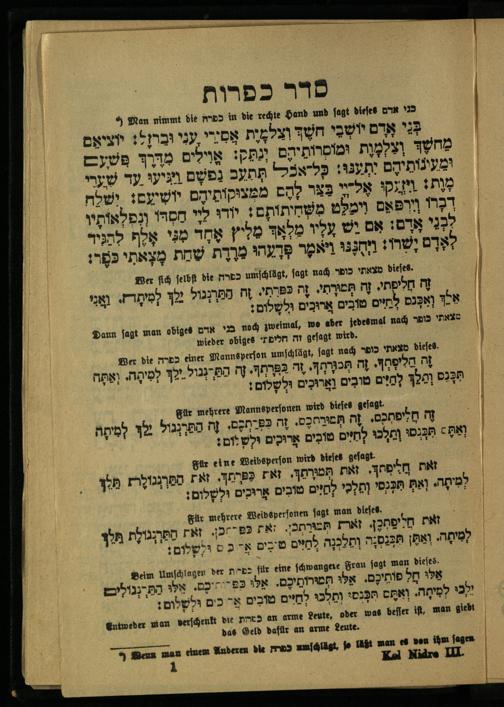 סדר כפרות
*) Man nimmt die כפרה in die rechte Hand und sagt dieses בני אדם
בְּנֵי אָדָם יוֹשְׁבֵי חֹשֶׁךְ וְצַלְמָוֶת אֲסִירֵי עֳנִי וּבַרְזֶל: יוֹצִיאֵם
מֵחֹשֶׁךְ וְצַלְמָוֶת וּמוֹסְרוֹתֵיהֶם יְנַתֵּק: אֱוִילִים מִדֶּרֶךְ פִּשְׁעָם
וּמֵעֲוֹנוֹתֵיהֶם יִתְעַנּוּ: כָּל־אֹכֶל תְּתַעֵב נַפְשָׁם וַיַּגִּיעוּ עַד שַׁעֲרֵי
מָוֶת: וַיִּזְעֲקוּ אֶל־יְיָ בַּצַּר לָהֶם מִמְּצוּקוֹתֵיהֶם יוֹשִׁיעֵם: יִשְׁלַח
דְּבָרוֹ וְיִרְפָּאֵם וִימַלֵּט מִשְּׁחִיתוֹתָם: יוֹדוּ לַיְיָ חַסְדּוֹ וְנִפְלְאוֹתָיו
לִבְנֵי אָדָם: אִם יֵשׁ עָלָיו מַלְאָךְ מֵלִיץ אֶחָד מִנִּי אָלֶף לְהַגִּיד
לְאָדָם יָשְׁרוֹ: וַיְחֻנֶּנּוּ וַיֹּאמֶר פְּדָעֵהוּ מֵרֶדֶת שַׁחַת מָצָאתִי כֹפֶר:
Wer sich selbst die כפרה umschlägt, sagt nach מצאתי כופר dieses.
זֶה חֲלִיפָתִי. זֶה תְּמוּרָתִי. זֶה כַּפָּרָתִי. זֶה הַתַּרְנְגוֹל יֵלֵךְ לְמִיתָה. וַאֲנִי
אֵלֵךְ וְאֶכָּנֵס לְחַיִּים טוֹבִים אֲרוּכִים וּלְשָׁלוֹם:
Dann sagt man obiges בני אדם noch zweimal, wo aber jedesmal nach מצאתי כופר
wieder obiges זה חליפתי gesagt wird.
Wer die כפרה einer Mannsperson umschlägt, sagt nach מצאתי כופר dieses.
זֶה חֲלִיפָתְךָ. זֶה תְּמוּרָתְךָ. זֶה כַּפָּרָתְךָ. זֶה הַתַּרְנְגוֹל יֵלֵךְ לְמִיתָה. וְאַתָּה
תִּכָּנֵס וְתֵלֵךְ לְחַיִּים טוֹבִים וַאֲרוּכִים וּלְשָׁלוֹם:
Für mehrere Mannspersonen wird dieses gesagt.
זֶה חֲלִיפַתְכֶם. זֶה תְּמוּרַתְכֶם. זֶה כַּפָּרַתְכֶם. זֶה הַתַּרְנְגוֹל יֵלֵךְ לְמִיתָה
וְאַתֶּם תִּכָּנְסוּ וְתֵלְכוּ לְחַיִּים טוֹבִים אֲרוּכִים וּלְשָׁלוֹם:
Für eine Weibsperson wird dieses gesagt.
זֹאת חֲלִיפָתֵךְ. זֹאת תְּמוּרָתֵךְ. זֹאת כַּפָּרָתֵךְ. זֹאת הַתַּרְנְגוֹלֶת תֵּלֵךְ
לְמִיתָה. וְאַתְּ תִּכָּנְסִי וְתֵלְכִי לְחַיִּים טוֹבִים אֲרוּכִים וּלְשָׁלוֹם:
Für mehrere Weibspersonen sagt man dieses.
זֹאת חֲלִיפַתְכֶן. זֹאת תְּמוּרַתְכֶן. זֹאת כַּפָּרַתְכֶן. זֹאת הַתַּרְנְגוֹלֶת תֵּלֵךְ
לְמִיתָה. וְאַתֶּן תִּכָּנַסְנָה וְתֵלַכְנָה לְחַיִּים טוֹבִים אֲרוּכִים וּלְשָׁלוֹם:
Beim Umschlagen der כפרת für eine schwangere Frau sagt man dieses.
אֵלּוּ חֲלִיפוֹתֵיכֶם. אֵלּוּ תְּמוּרוֹתֵיכֶם. אֵלּוּ כַּפָּרוֹתֵיכֶם. אֵלּוּ הַתַּרְנְגוֹלִים
יֵלְכוּ לְמִיתָה. וְאַתֶּם תִּכָּנְסוּ וְתֵלְכוּ לְחַיִּים טוֹבִים אֲרוּכִים וּלְשָׁלוֹם:
Entweder man verschenkt die כפרות an arme Leute, oder was besser ist, man giebt
das Geld dafür an arme Leute.
*) Wenn man einem Anderen die כפרה umschlägt, so läßt man es von ihm sagen
1 Kol Nidre III.